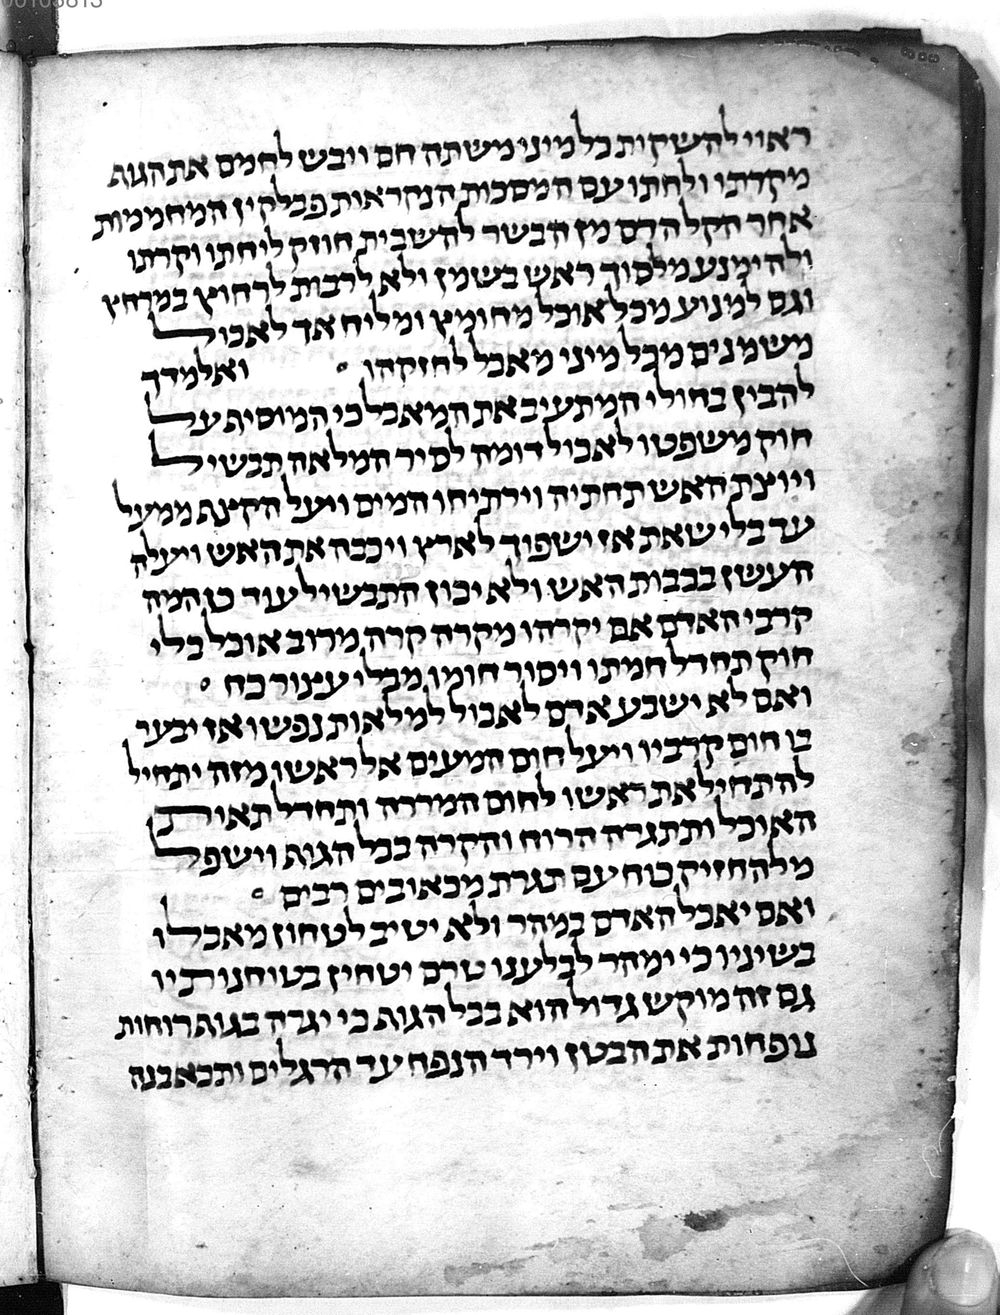 00105813
ראוי להשקות כל מיני משתה חם וייבש לחמם את הגות
מקדתו ולחתו עם המסכות הנקראות פבלקין המחממות
אחר הקל הדם מן הבשר להשבית חוזק ליחתו וקרתו
ולהימנע מלסוך ראש בשמן ולא לרבות לרחוץ במרחץ
וגם למנוע מכל אוכל מחומץ ומליח אך לאכול
משמנים מכל מיני מאכל לחזקהו ואלמדך
להבין בחולי המתעיב את המאכל כי המוסיף על
חוק משפטו לאכול דומה לסיר המלאה תבשיל
ויוצת האש תחתיה וירתיחו המים ויעל הקצף ממעל
עד בלי שאת אז ישפוך לארץ ויכבה את האש ויעלה
העשן בכבות האש ולא יכון התבשיל עוד כן המה
קרבי האדם אם יקרהו מקרה קרה מרוב אוכל בלי
חוק תחדל חמתו ויסור חומו מבלי עצור כח
ואם לא ישבע אדם לאכול למלאות נפשו אז יבער
בו חום קרביו ויעל חום המעים אל ראשו מזה יתחיל
להתחיל את ראשו לחום המררה ותחדל תאות
האוכל ותתגרה הרוח והקרה בכל הגות וישפל
מלהחזיק כוח עם תגרת מכאובים רבים
ואם יאכל האדם במהר ולא יטיב לטחון מאכלו
בשיניו כי ימהר לבלענו טרם יטחין בטוחנותיו
גם זה מוקש גדול הוא בכל הגות כי יגרה בגות רוחות
נופחות את הבטן וירד הנפח עד הרגלים ותכאבנה